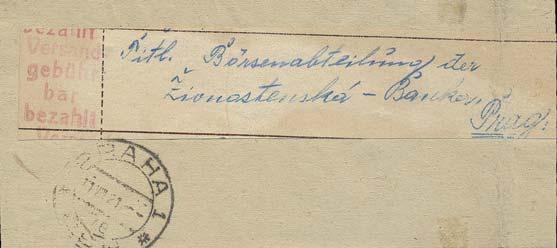 bezahlt
Versand
gebühr
bar
bezahlt
Vers
Titl. Börsenabteilung der
Živnostenská - Banka
Prag.
PRAHA 1